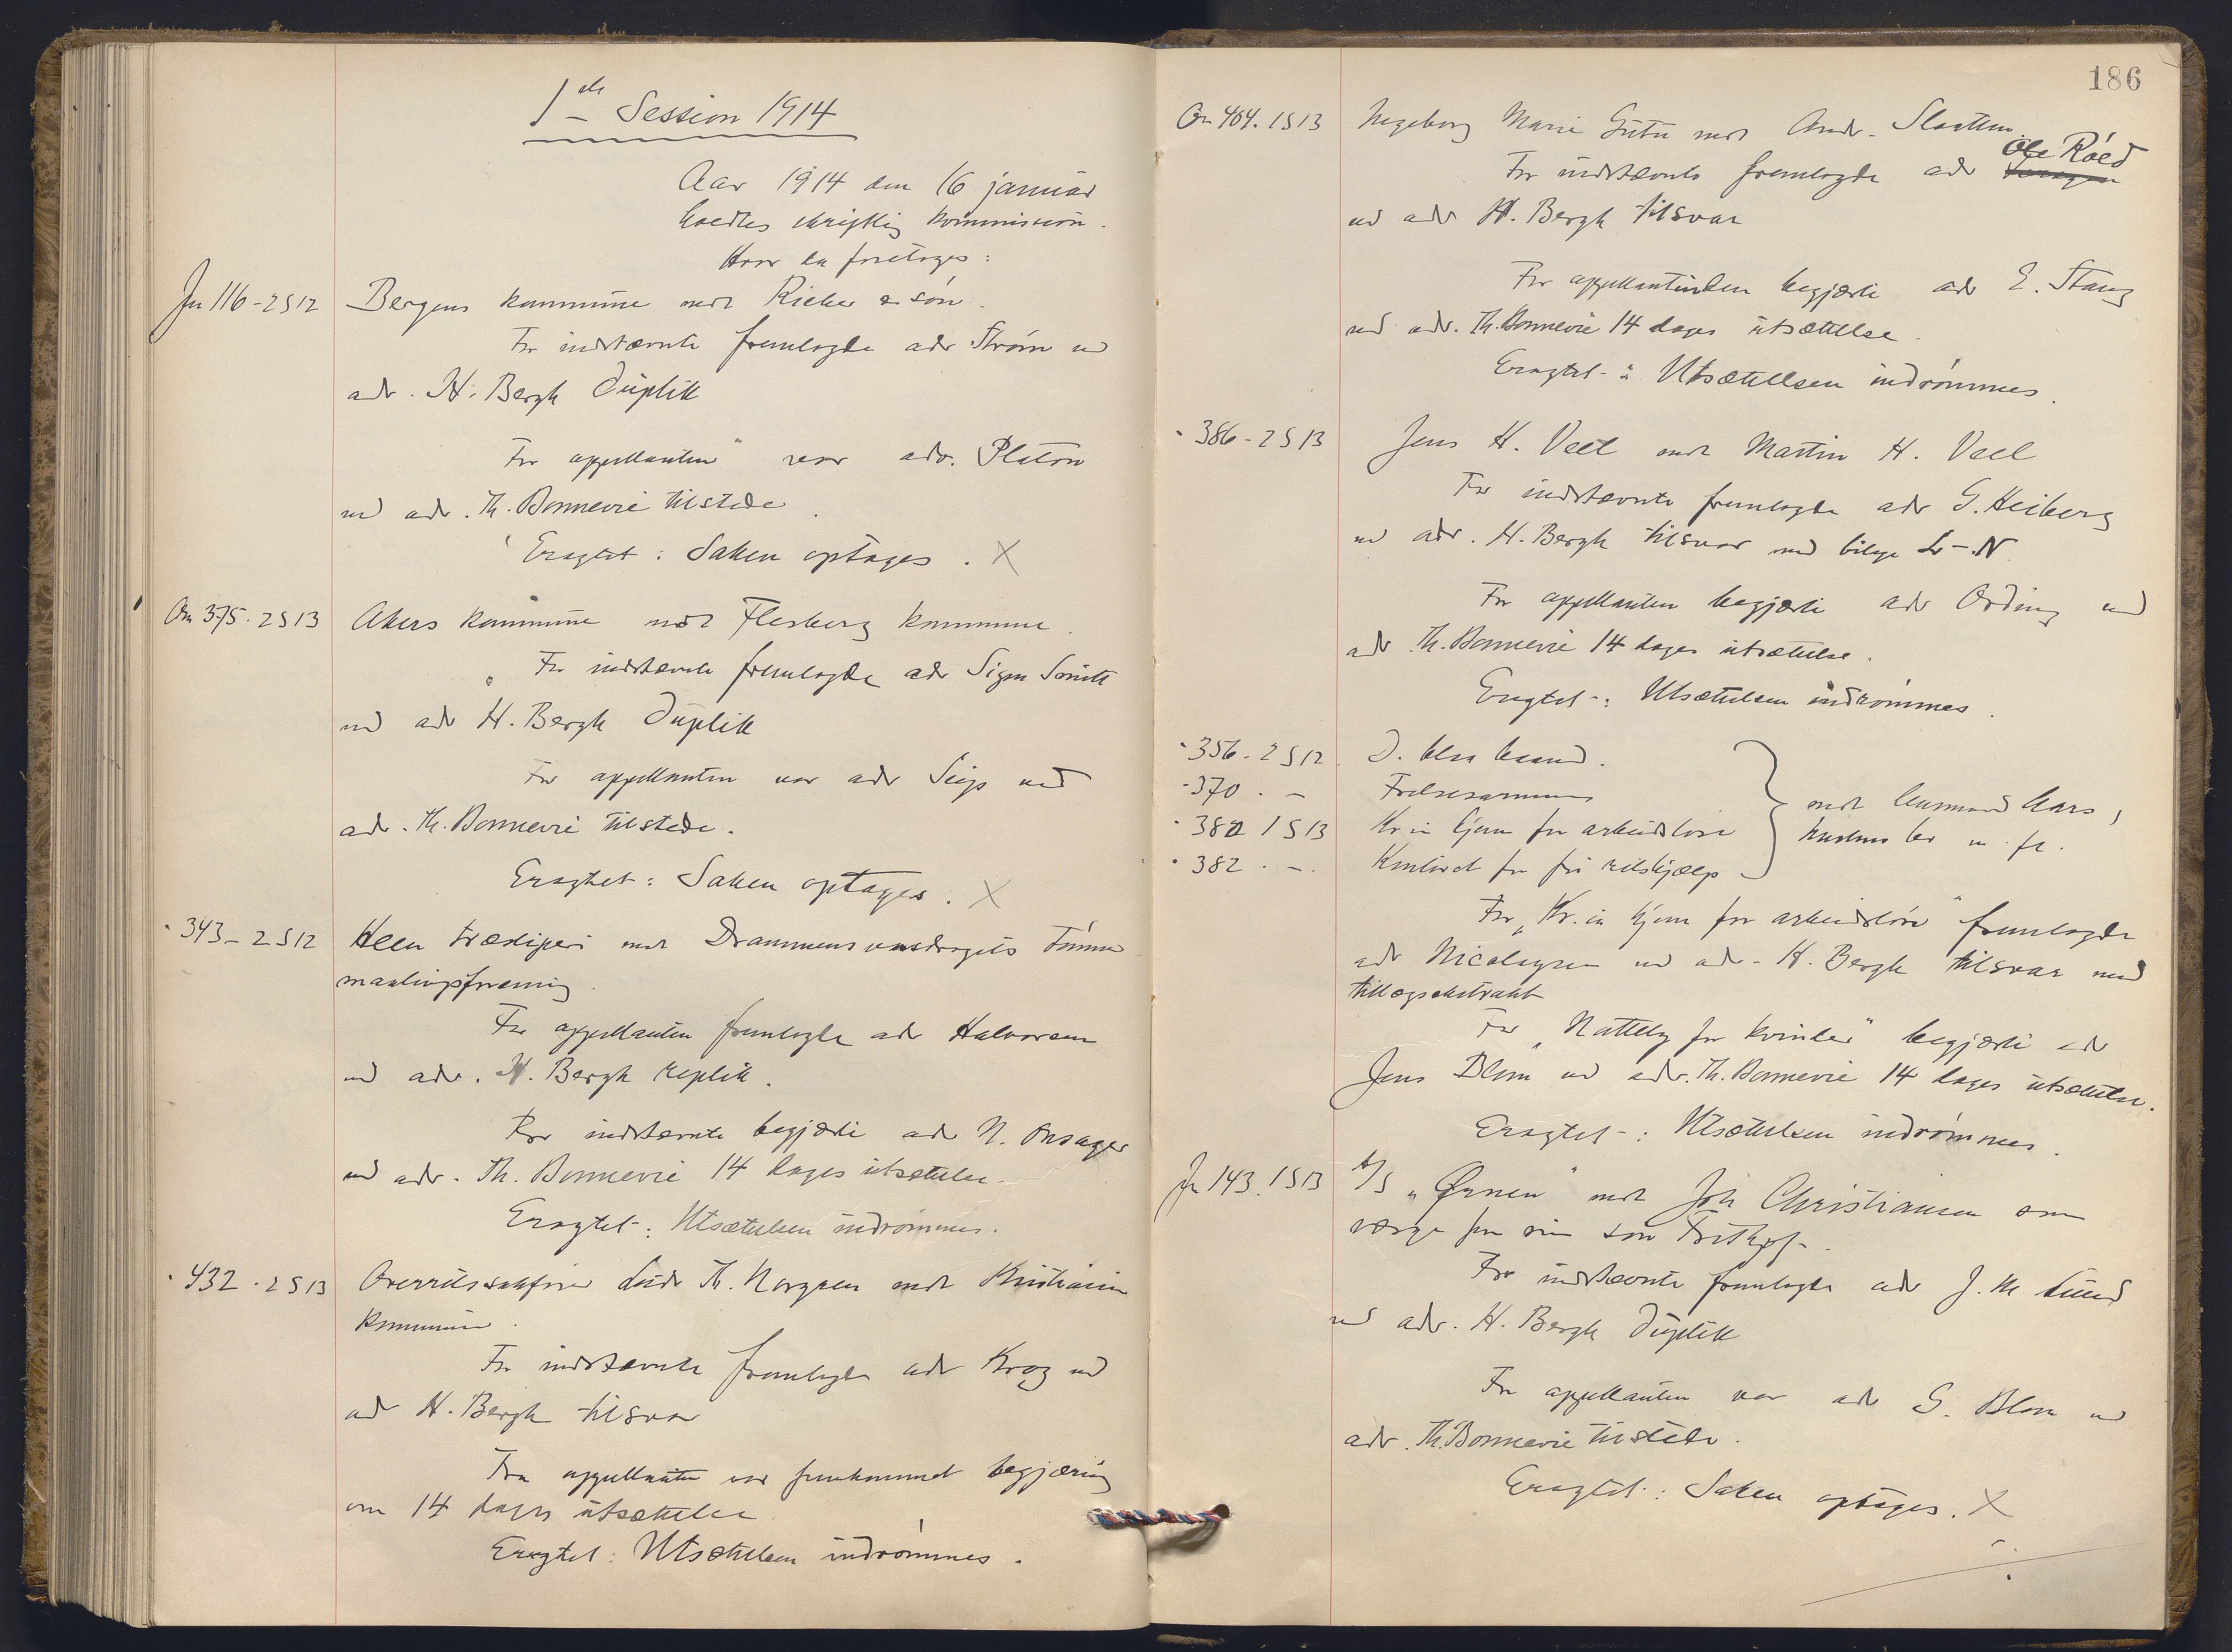 1ste Session 1914
Aar 1914 den 16 januar
holdtes skriftlig kommission.
Hvor da foretoges:
Jn 116-2S12 Bergens kommune mot Rieber & søn.
For indstævnte fremlagde adv Strøm ved
adv. H. Bergh duplik
For appellanten var adv. Platou
ved adv. Th. Bonnevie tilstede.
Eragtet: Saken optages. X
On 375-2S13 Akers kommune mot Flesberg kommune.
For indstævnte fremlagde adv Sigm
ved adv H. Bergh duplik
For appellanten var adv Seip ved
adv. Th. Bonnevie tilstede.
Eragtet: Saken optages. X
" 343-2S12 Heen træsliperi mot Drammensvasdragets Tømmer
maalingsforening.
For appellanten fremlagde adv Halvorsen
ved adv. H. Bergh replik.
For indstævnte begjærte adv N. Onsager
ved adv. Th. Bonnevie 14 dages utsættelse.
Eragtet: Utsættelsen indrømmes.
" 432-2S13 Overretssakfører Th. Norgren mot Kristiania
kommune.
For indstævnte fremlagde adv Krag ved
adv H. Bergh tilsvar
Fra appellanten var fremkommet begjæring
om 14 dages utsættelse
Eragtet: Utsættelsen indrømmes.
186
On 464. 1S13 Ingeborg Marie mot And. Slaatten.
Ole Røed
For indstævnte fremlagde adv
ved adv H. Bergh tilsvar
For appellantinden begjærte adv E. Stang
ved adv. Th. Bonnevie 14 dages utsættelse.
Eragtet: Utsættelsen indrømmes.
" 386-2S13 Jens H. Veel mot Martin H. Veel
For indstævnte fremlagde adv G. Heiberg
ved adv. H. Bergh tilsvar med bilage L-N.
For appellanten begjærte adv Ording ved
adv Th. Bonnevie 14 dages utsættelse.
Eragtet: Utsættelsen indrømmes.
" 356-2S12 D. blaa baand.
" 370 - Frelsesarmeen
" 380 1S13 Kr.ia hjem for arbeidsløse
" 382 - Kontoret for fri retshjælp
mot
m. fl.
For "Kr.ia hjem for arbeidsløse" fremlagde
adv Nicolaysen ved adv. H. Bergh tilsvar med
tillægsekstrakt
For "Natthly for kvinder" begjærte adv
Jens Blom ved adv. Th. Bonnevie 14 dages utsættelse.
Eragtet: Utsættelsen indrømmes.
Jn 143. 1S13 A/S "Ørnen" mot Joh Christiansen som
værge for sin søn Fritjof.
For indstævnte fremlagde adv J. M. Lund
ved adv. H. Bergh duplik
For appellanten var adv G. Blom ved
adv. Th. Bonnevie tilstede.
Eragtet: Saken optages. X